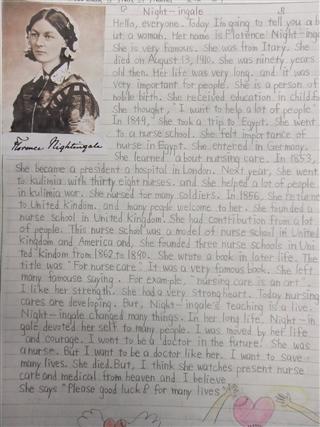 Night-ingale
Hello, everyone. Today I'm going to tell you a b
ut a woman. Her name is Florence Night-inga
She is very famous. She was from Itary. She
died on August 13, 1910. She was ninety years
old then. Her life was very long. and it was
very important for people. She is a person of
noble birth. She received education in childho
She thought, "I want to help a lot of people"
In 1849, She took a trip to Egypt. She went
to a nurse school. She felt importance of
nurse in Egypt. She entered in Germany.
She learned about nursing care. In 1853,
She became a president a hospital in London. Next year, She went
to kulimia with thirty eight nurses. and She helped a lot of people
in kulimia war. She nursed for many soldiers. In 1856, She returned
to United Kindom. and many people welcome to her. She founded a
nurse school in United Kingdom. She had contribution from a lot
of people. This nurse school was a model of nurse school in United
Kingdom and America and, She founded three nurse schools in Uni
ted Kindom from 1862 to 1890. She wrote a book in later life. The
title was "For nurse care". It was a very famous book. She left
many famouse saying. For example, "nursing care is an art".
I like her strength. She had a very strong heart. Today nursing
cares are developing. But, Night-ingale's teaching is a live.
Night-ingale changed many things. In her long life, Night-in
gale devoted her self to many people. I was moved by her life
and courage. I want to be a doctor in the future. She was
a nurse. But I want to be a doctor like her. I want to save
many lives. She died. But, I think she watches present nurse
care and medical from heaven and I believe
She says "Please good luck for many lives"
Florence Nightingale